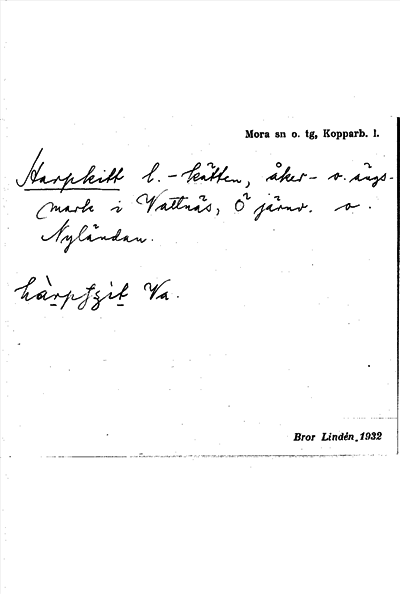 Mora sn o. tg, Kopparb. l.
Harpkitt l. -kätten, åker- o. ängs-
mark i Vattnäs, Ö järnv. o.
Nyländan.
Va.
Bror Lindén, 1932